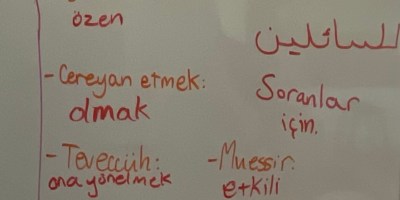 özen
- Cereyan etmek:
olmak
- Teveccüh:
ona yönelmek
للسائلين
Soranlar
için.
- Muessir:
etkili